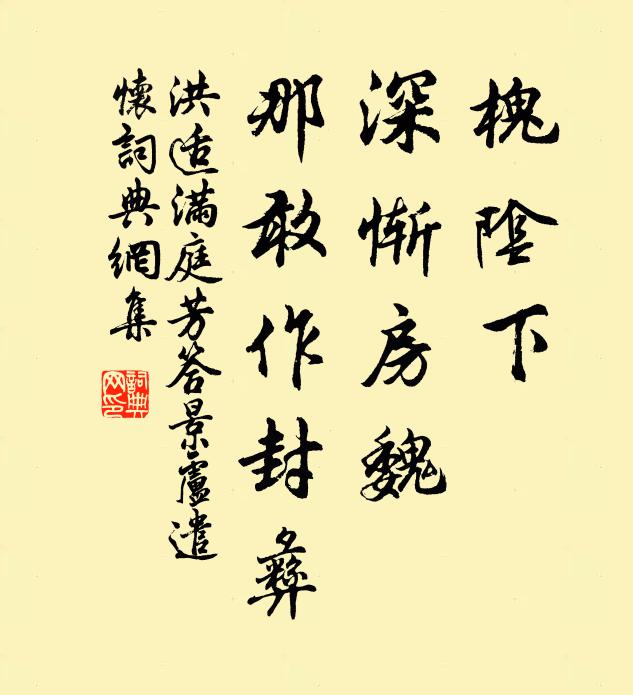 槐陰下
深慚房魏
那敢作封彝
洪适滿庭芳答景廬遣
懷詞典網集
詞典
网印